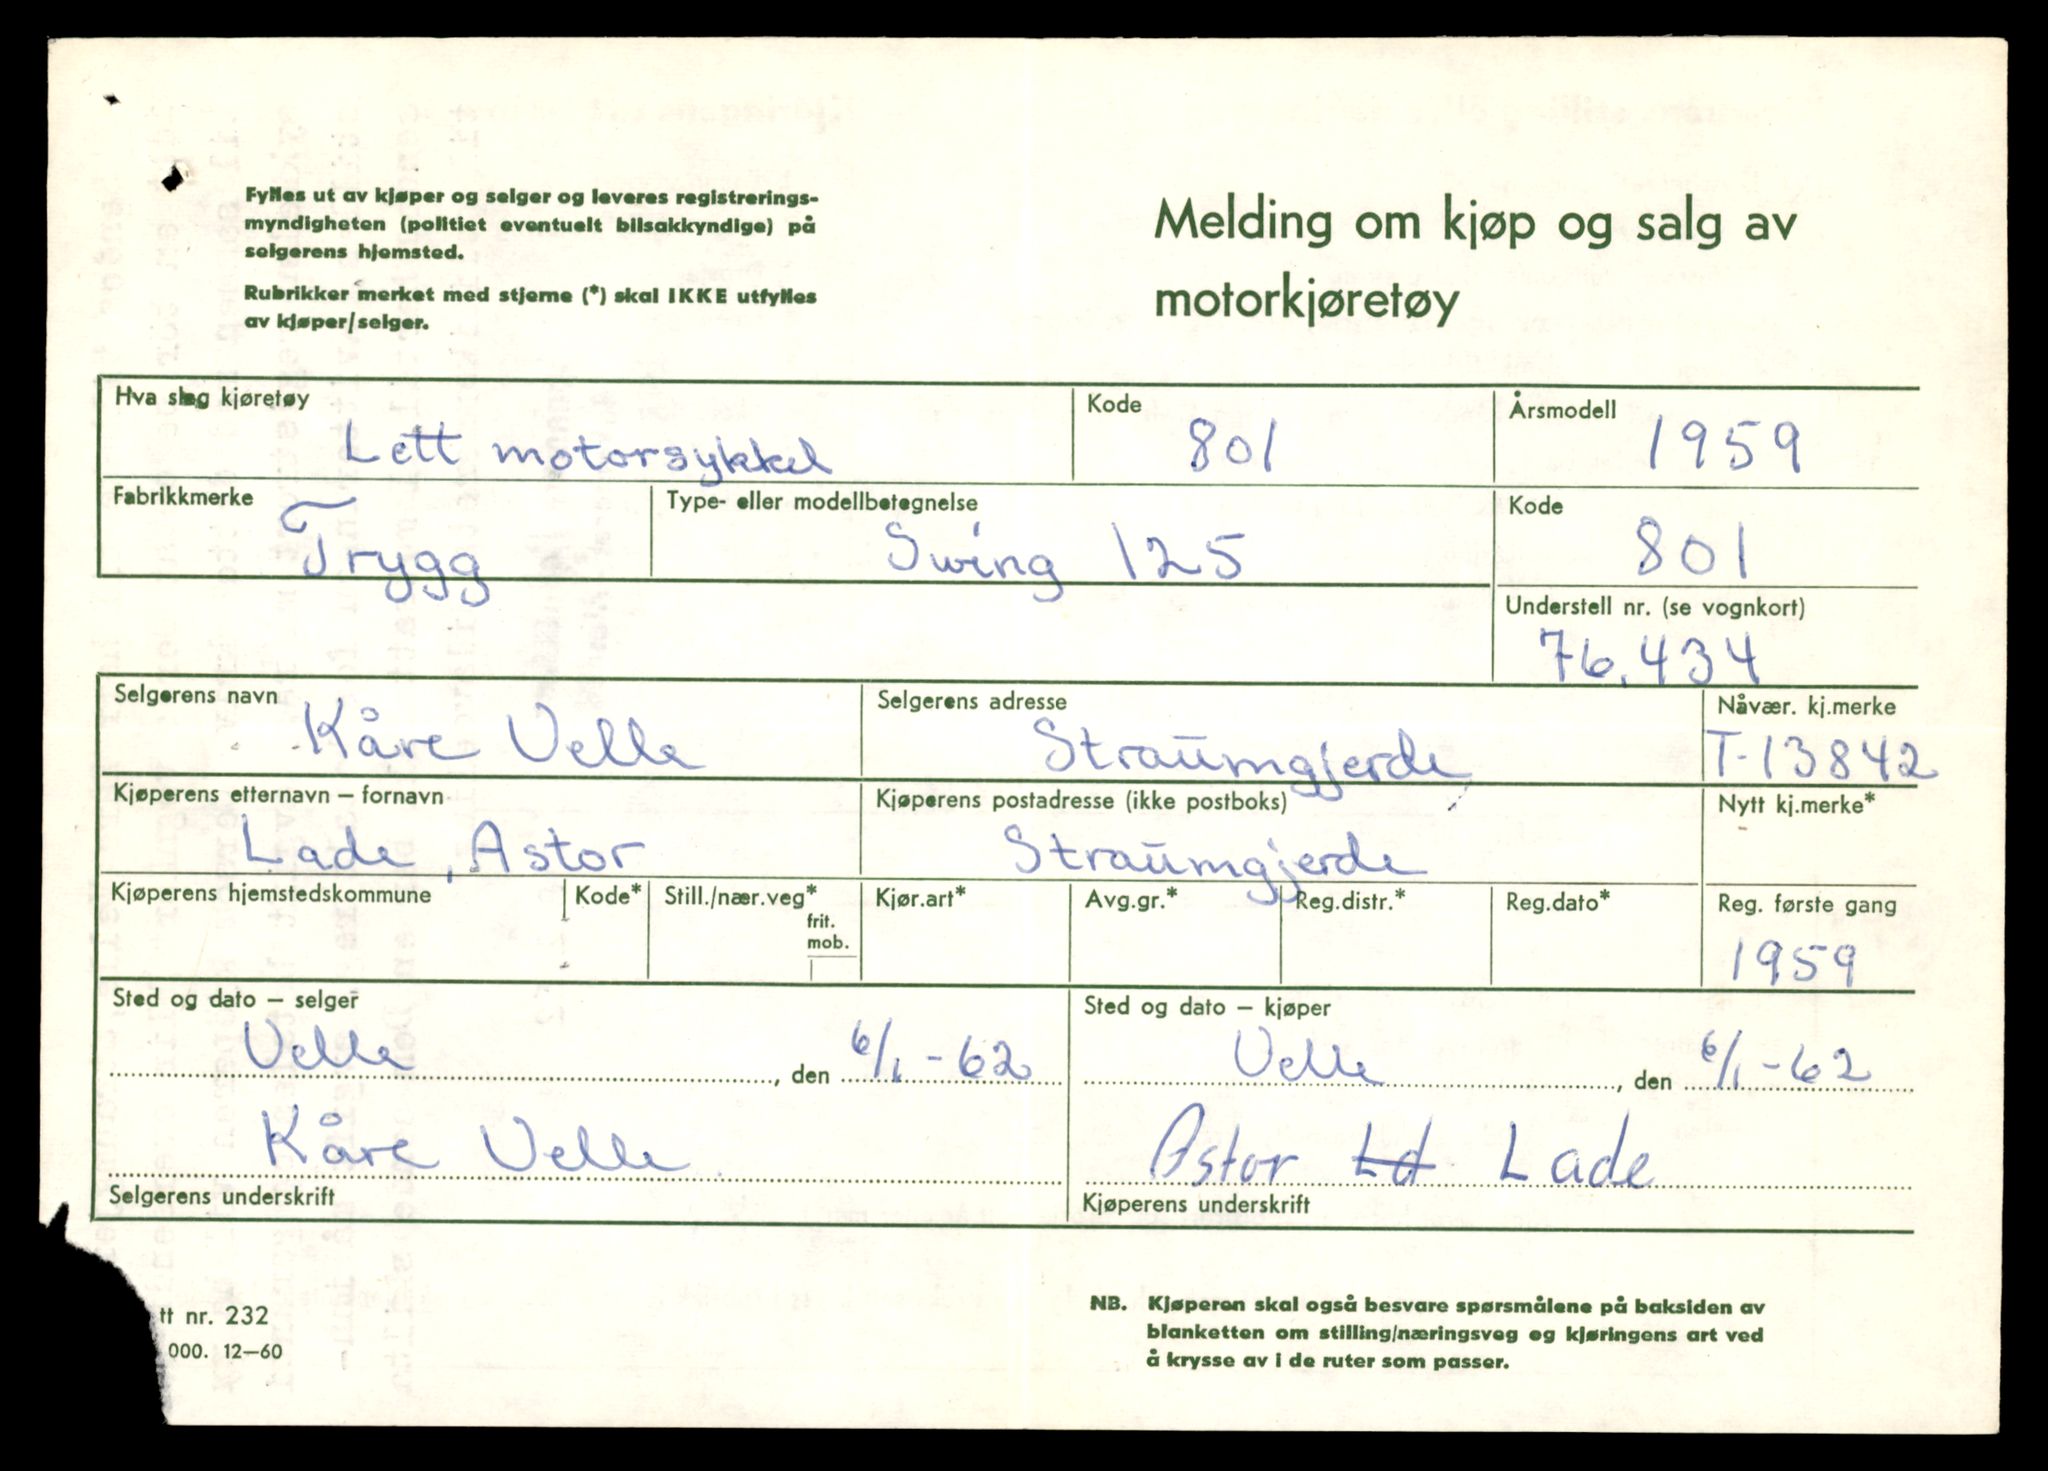 Fylles ut av kjøper og selger og leveres registrerings-
myndigheten (politiet eventuelt bilsakkyndige) på
selgerens hjemsted.
Rubrikker merket med stjerne (*) skal IKKE utfylles
av kjøper/selger.
Melding om kjøp og salg av
motorkjøretøy
Hva slag kjøretøy
Lett motorsykkel
Kode
801
Årsmodell
1959
Fabrikkmerke
Trygg
Type- eller modellbetegnelse
Swing 125
Kode
801
Understell nr. (se vognkort)
76.434
Selgerens navn
Kåre Velle
Selgerens adresse
Straumgjerde
Nåvær. kj.merke
T-13842
Kjøperens etternavn – fornavn
Lade, Astor
Kjøperens postadresse (ikke postboks)
Straumgjerde
Nytt kj.merke*
Kjøperens hjemstedskommune
Kode*
Still./nær.veg*
frit.
mob.
Kjør.art*
Avg.gr.*
Reg.distr.*
Reg.dato*
Reg. første gang
1959
Sted og dato – selger
Velle, den 6/1-62
Sted og dato – kjøper
Velle, den 6/1-62
Kåre Velle
Selgerens underskrift
Astor Ld Lade
Kjøperens underskrift
tt nr. 232
000. 12–60
NB. Kjøperen skal også besvare spørsmålene på baksiden av
blanketten om stilling/næringsveg og kjøringens art ved
å krysse av i de ruter som passer.